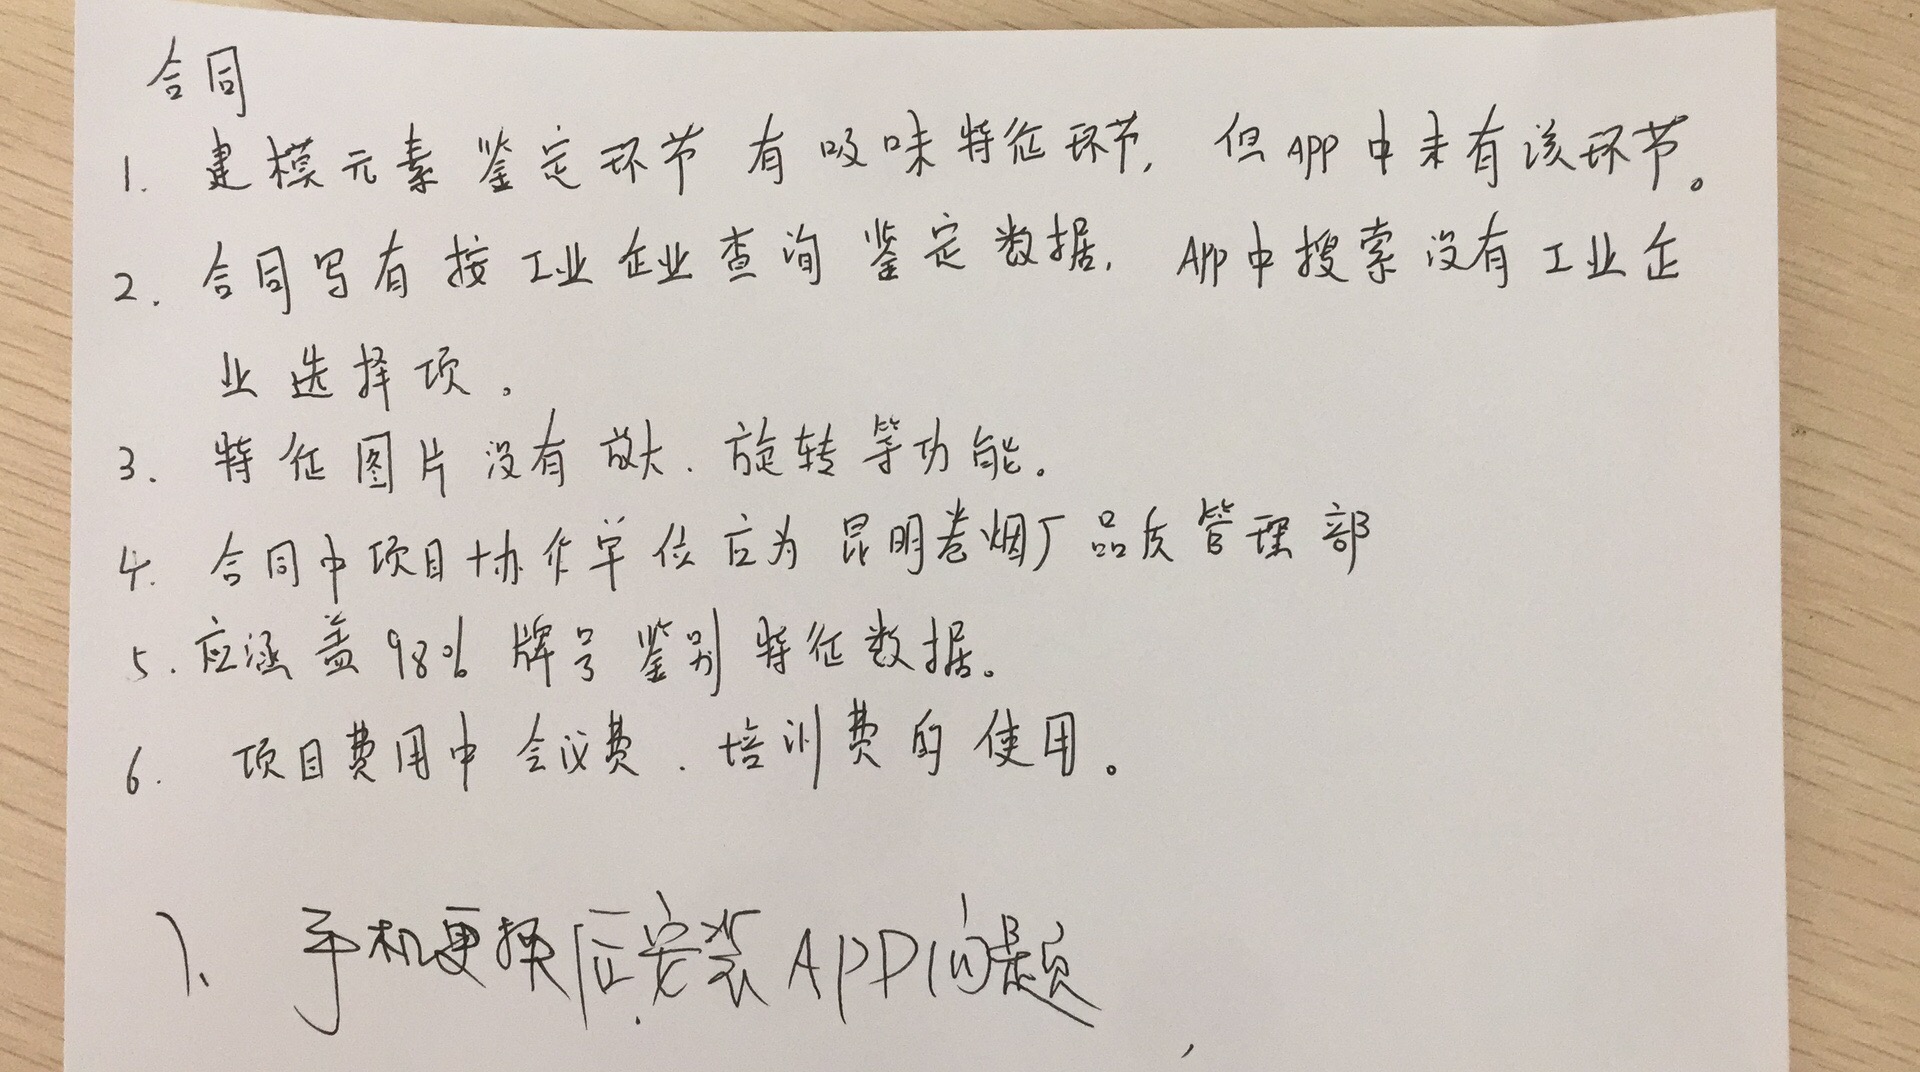 合同
1. 建模元素鉴定环节有吸味特征环节, 但APP中未有该环节。
2. 合同写有按工业企业查询鉴定数据, APP中搜索没有工业企
业选择项。
3. 特征图片没有放大、旋转等功能。
4. 合同中项目协作单位应为昆明卷烟厂品质管理部
5. 应涵盖98%牌号鉴别特征数据。
6. 项目费用中会议费、培训费的使用。
7、手机更换后安装APP问题